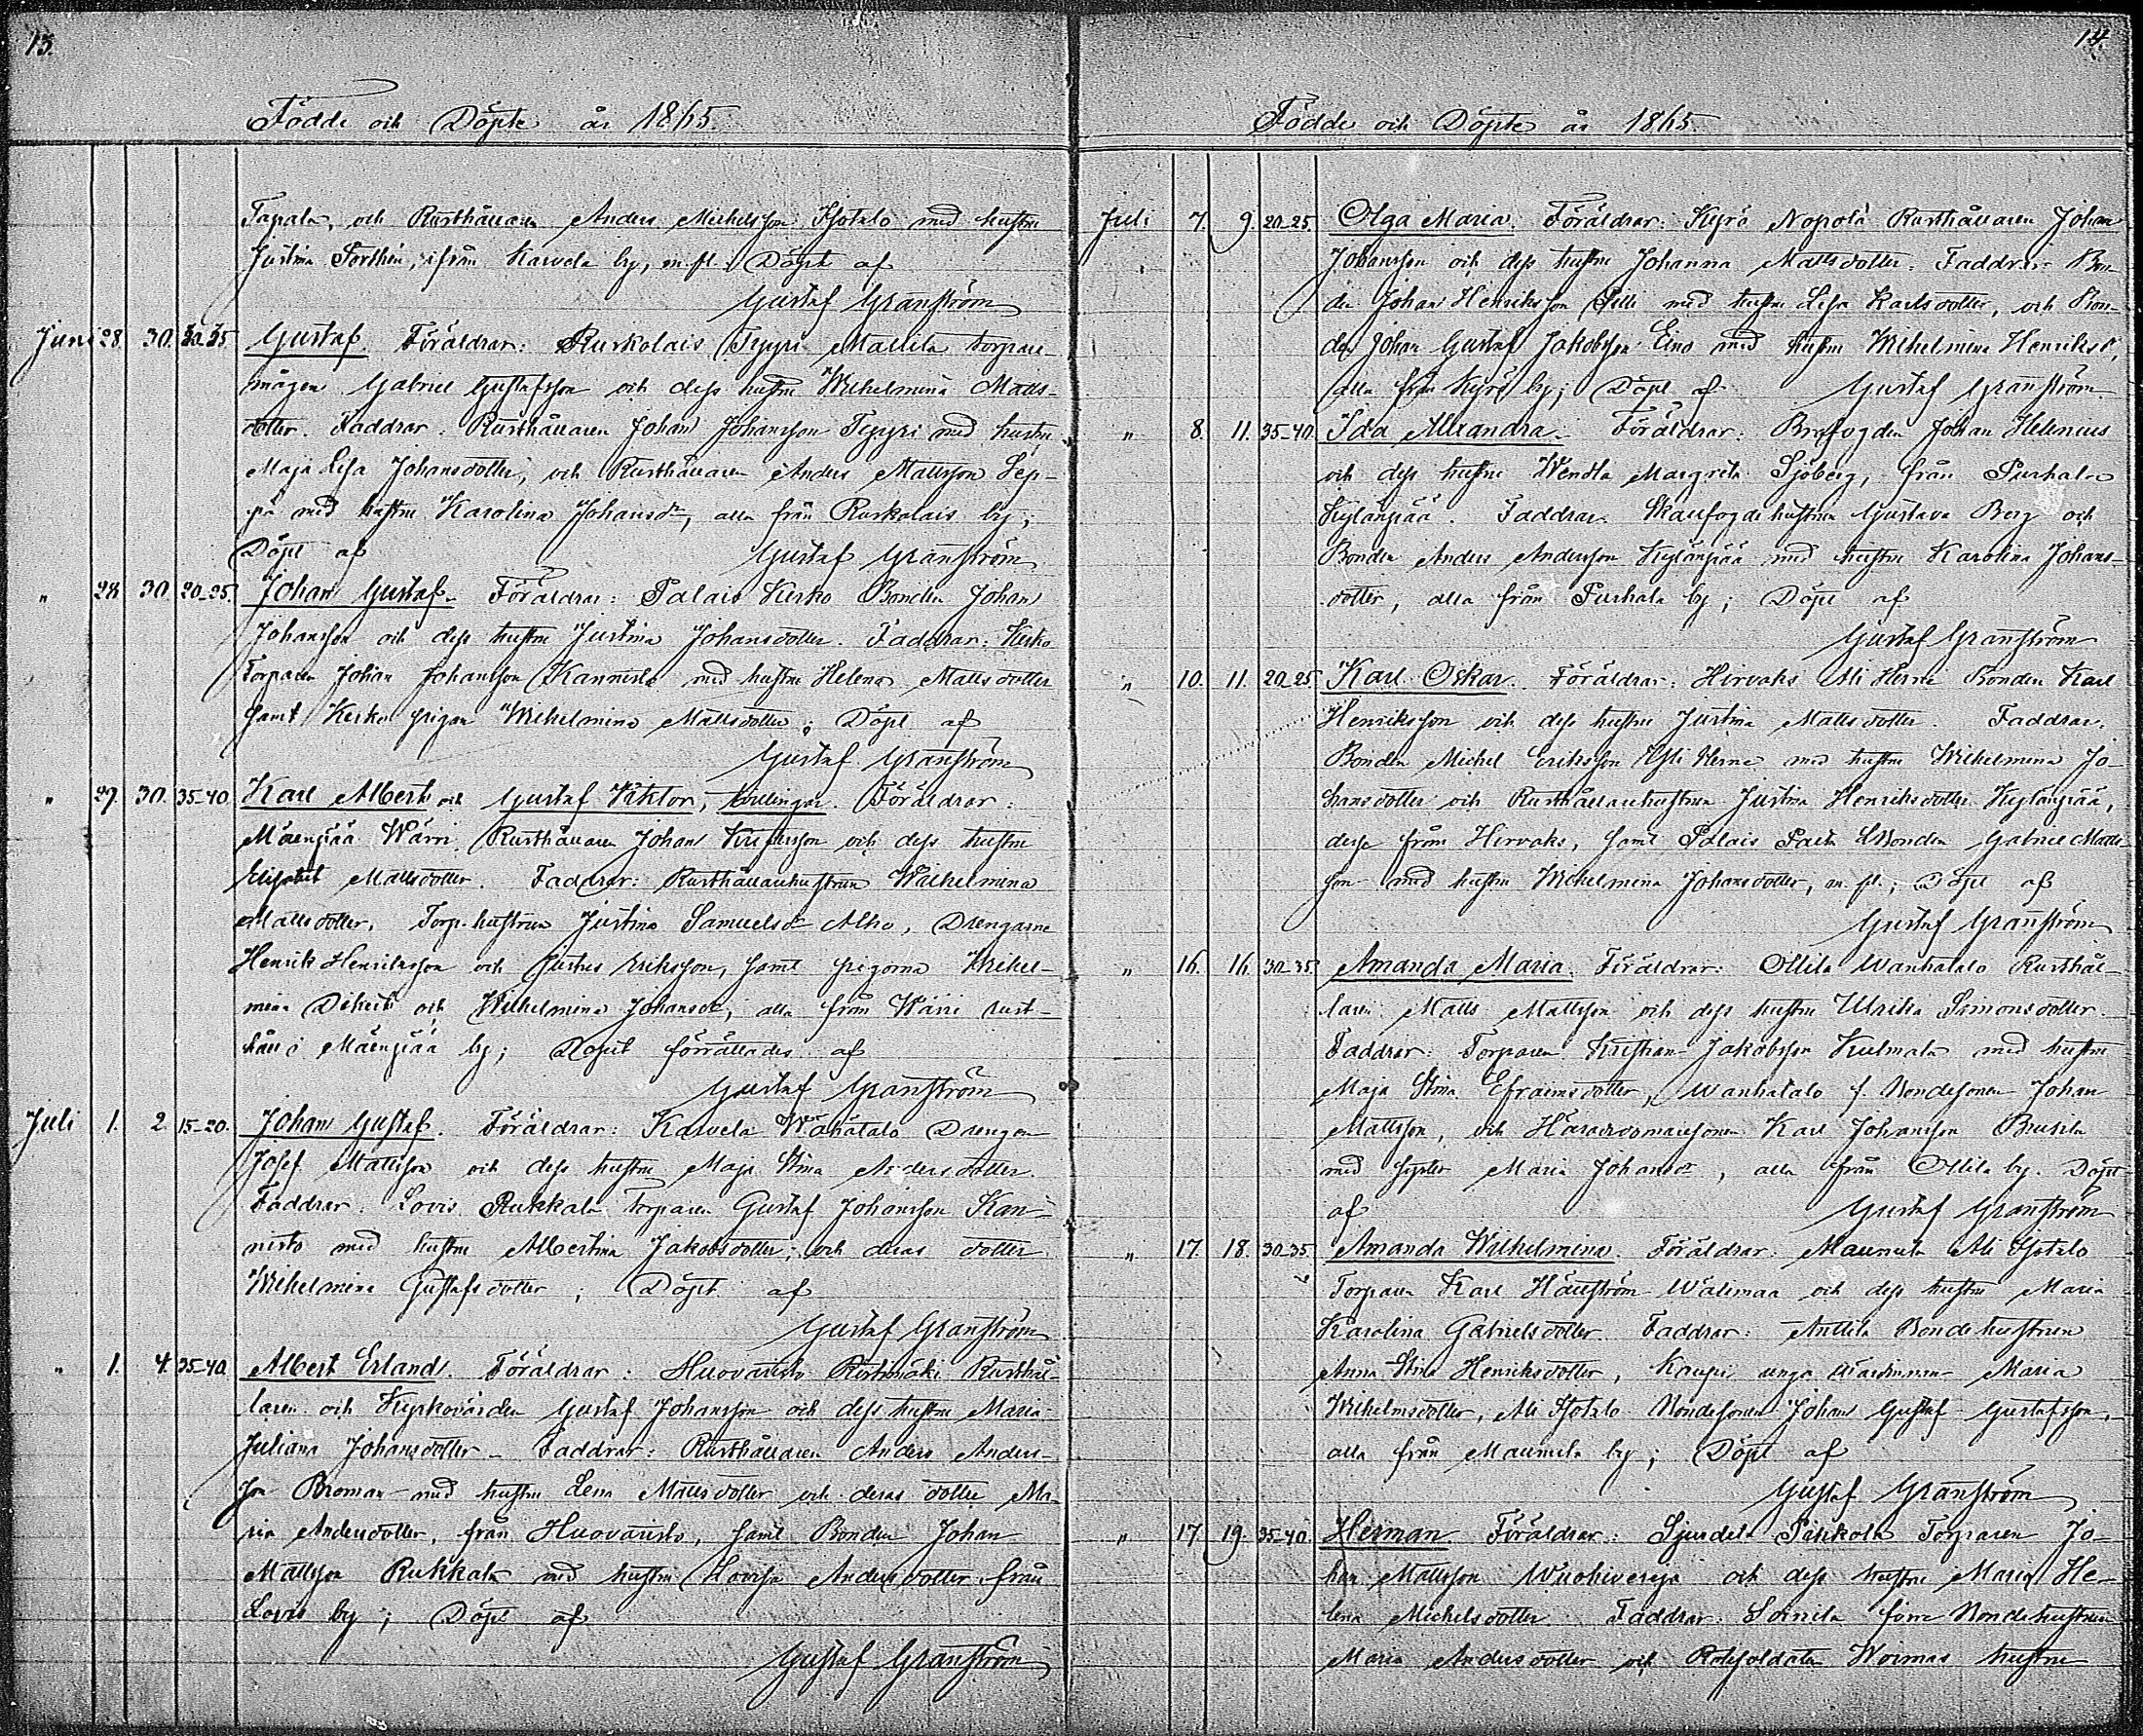 13.
Födde och Döpte år 1865.
Tapala, och Rusthållaren Anders Michelsson Isotalo med hustru
Justina Forthén, ifrån Karvela by, m. fl. Döpt af
Gustaf Granström
Juni 28. 30. 30-35 Gustaf. Föräldrar: Ruskolais Tyyri Mattila torpare-
mågen Gabriel Gustafsson och dess hustru Wilhelmina Matts-
dotter. Faddrar: Rusthållaren Johan Johansson Tyyri med hustru
Maja Lisa Johansdotter, och Rusthållaren Anders Mattsson Sep-
pä med hustru Karolina Johansdr, alla från Ruskolais by;
Döpt af Gustaf Granström
" 28 30 20-25. Johan Gustaf. Föräldrar: Palais Kesko Bonden Johan
Johansson och dess hustru Justina Johansdotter. Faddrar: Kesko
torparen Johan Johansson Kannisto med hustru Helena Mattsdotter
samt Kesko pigan Wilhelmina Mattsdotter; Döpt af
Gustaf Granström
" 29. 30. 35-40 Karl Albert och Gustaf Viktor, tvillingar. Föräldrar:
Mäenpää Wärri Rusthållaren Johan och dess hustru
Elisabet Mattsdotter. Faddrar: Rusthållarehustrun Wilhelmina
Mattsdotter, Torp. hustrun Justina Samuelsdr Alho, Drengarne
Henrik Henriksson och Gustaf Eriksson, samt pigorna Wilhel-
mina och Wilhelmina Johansdr, alla från Wärri rust-
håll i Mäenpää by; Dopet förrättades af
Gustaf Granström
Juli 1. 2 15-20. Johan Gustaf. Föräldrar: Karvela Wähätalo Drengen
Josef Mattsson och dess hustru Maja Stina Andersdotter.
Faddrar: Lovis Rukkala Torparen Gustaf Johansson Kan-
nisto med hustru Albertina Jakobsdotter; och deras dotter
Wilhelmina Gustafsdotter; Döpt af
Gustaf Granström
" 1. 4. 35-40. Albert Erland. Föräldrar: Huovaristo Ristimäki Rusthål-
laren och Kyrkovärden Gustaf Johansson och dess hustru Maria
Juliana Johansdotter. Faddrar: Rusthållaren Anders Anders-
son Broman med hustru Lena Mattsdotter och deras dotter Ma-
ria Andersdotter, från Huovaristo, samt Bonden Johan
Mattsson Rukkala med hustru Lovisa Andersdotter från
Lovis by; Döpt af
Gustaf Granström
14.
Födde och Döpte år 1865.
Juli 7. 9. 20-25. Olga Maria. Föräldrar: Kyrö Nopola Rusthållaren Johan
Johansson och dess hustru Johanna Mattsdotter. Faddrar: Bon-
den Johan Henriksson Pelli med hustru Lisa Karlsdotter, och Bon-
den Johan Gustaf Jakobsson Eino med hustru Wilhelmina Henriksdr,
alla från Kyrö by; Döpt af Gustaf Granström
" 8. 11. 35-40. Ida Alexandra. Föräldrar: Brofogden Johan Helenius
och dess hustru Wendla Margreta Sjöberg, från Purhala
Kylänpää. Faddrar: Skallfogdehustrun Gustava Berg och
Bonden Anders Andersson Kylänpää med hustru Karolina Johans-
dotter, alla från Purhala by; Döpt af
Gustaf Granström
" 10. 11. 20-25 Karl Oskar. Föräldrar: Hirvoks Ali Herne Bonden Karl
Henriksson och dess hustru Justina Mattsdotter. Faddrar.
Bonden Michel Eriksson Yli Herne med hustru Wilhelmina Jo-
hansdotter och Rusthållarehustrun Justina Henriksdotter Kylänpää,
dessa från Hirvoks, samt Palais Bonden Gabriel Matts-
son med hustru Wilhelmina Johansdotter, m. fl.; Döpt af
Gustaf Granström
" 16. 16 30-35. Amanda Maria. Föräldrar: Ollila Wanhatalo Rusthål-
laren Matts Mattsson och dess hustru Ulrika Simonsdotter.
Faddrar: Torparen Kristian Jakobsson Kulmala med hustru
Maja Stina Efraimsdotter, Wanhatalo f. Bondesonen Johan
Mattsson, och Häradsdomaresonen Karl Johansson Brusila
med syster Maria Johansdr, alla från Ollila by. Döpt
af Gustaf Granström
" 17. 18. 30-35. Amanda Wilhelmina. Föräldrar: Maunula Ali Isotalo
Torparen Karl Hällström Wälimaa och dess hustru Maria
Karolina Gabrielsdotter. Faddrar: Anttila Bondehustrun
Anna Stina Henriksdotter, Kaupi unga värdinnan Maria
Wilhelmsdotter, Ali Isotalo Bondesonen Johan Gustaf Gustafsson,
alla från Maunula by; Döpt af
Gustaf Granström
" 17 19. 35-40. Herman. Föräldrar: Sjundela Torparen Jo-
han Mattsson och dess hustru Maria He-
lena Michelsdotter. Faddrar: Bondehustrun
Maria Andersdotter och Rotesoldaten Woimas hustru